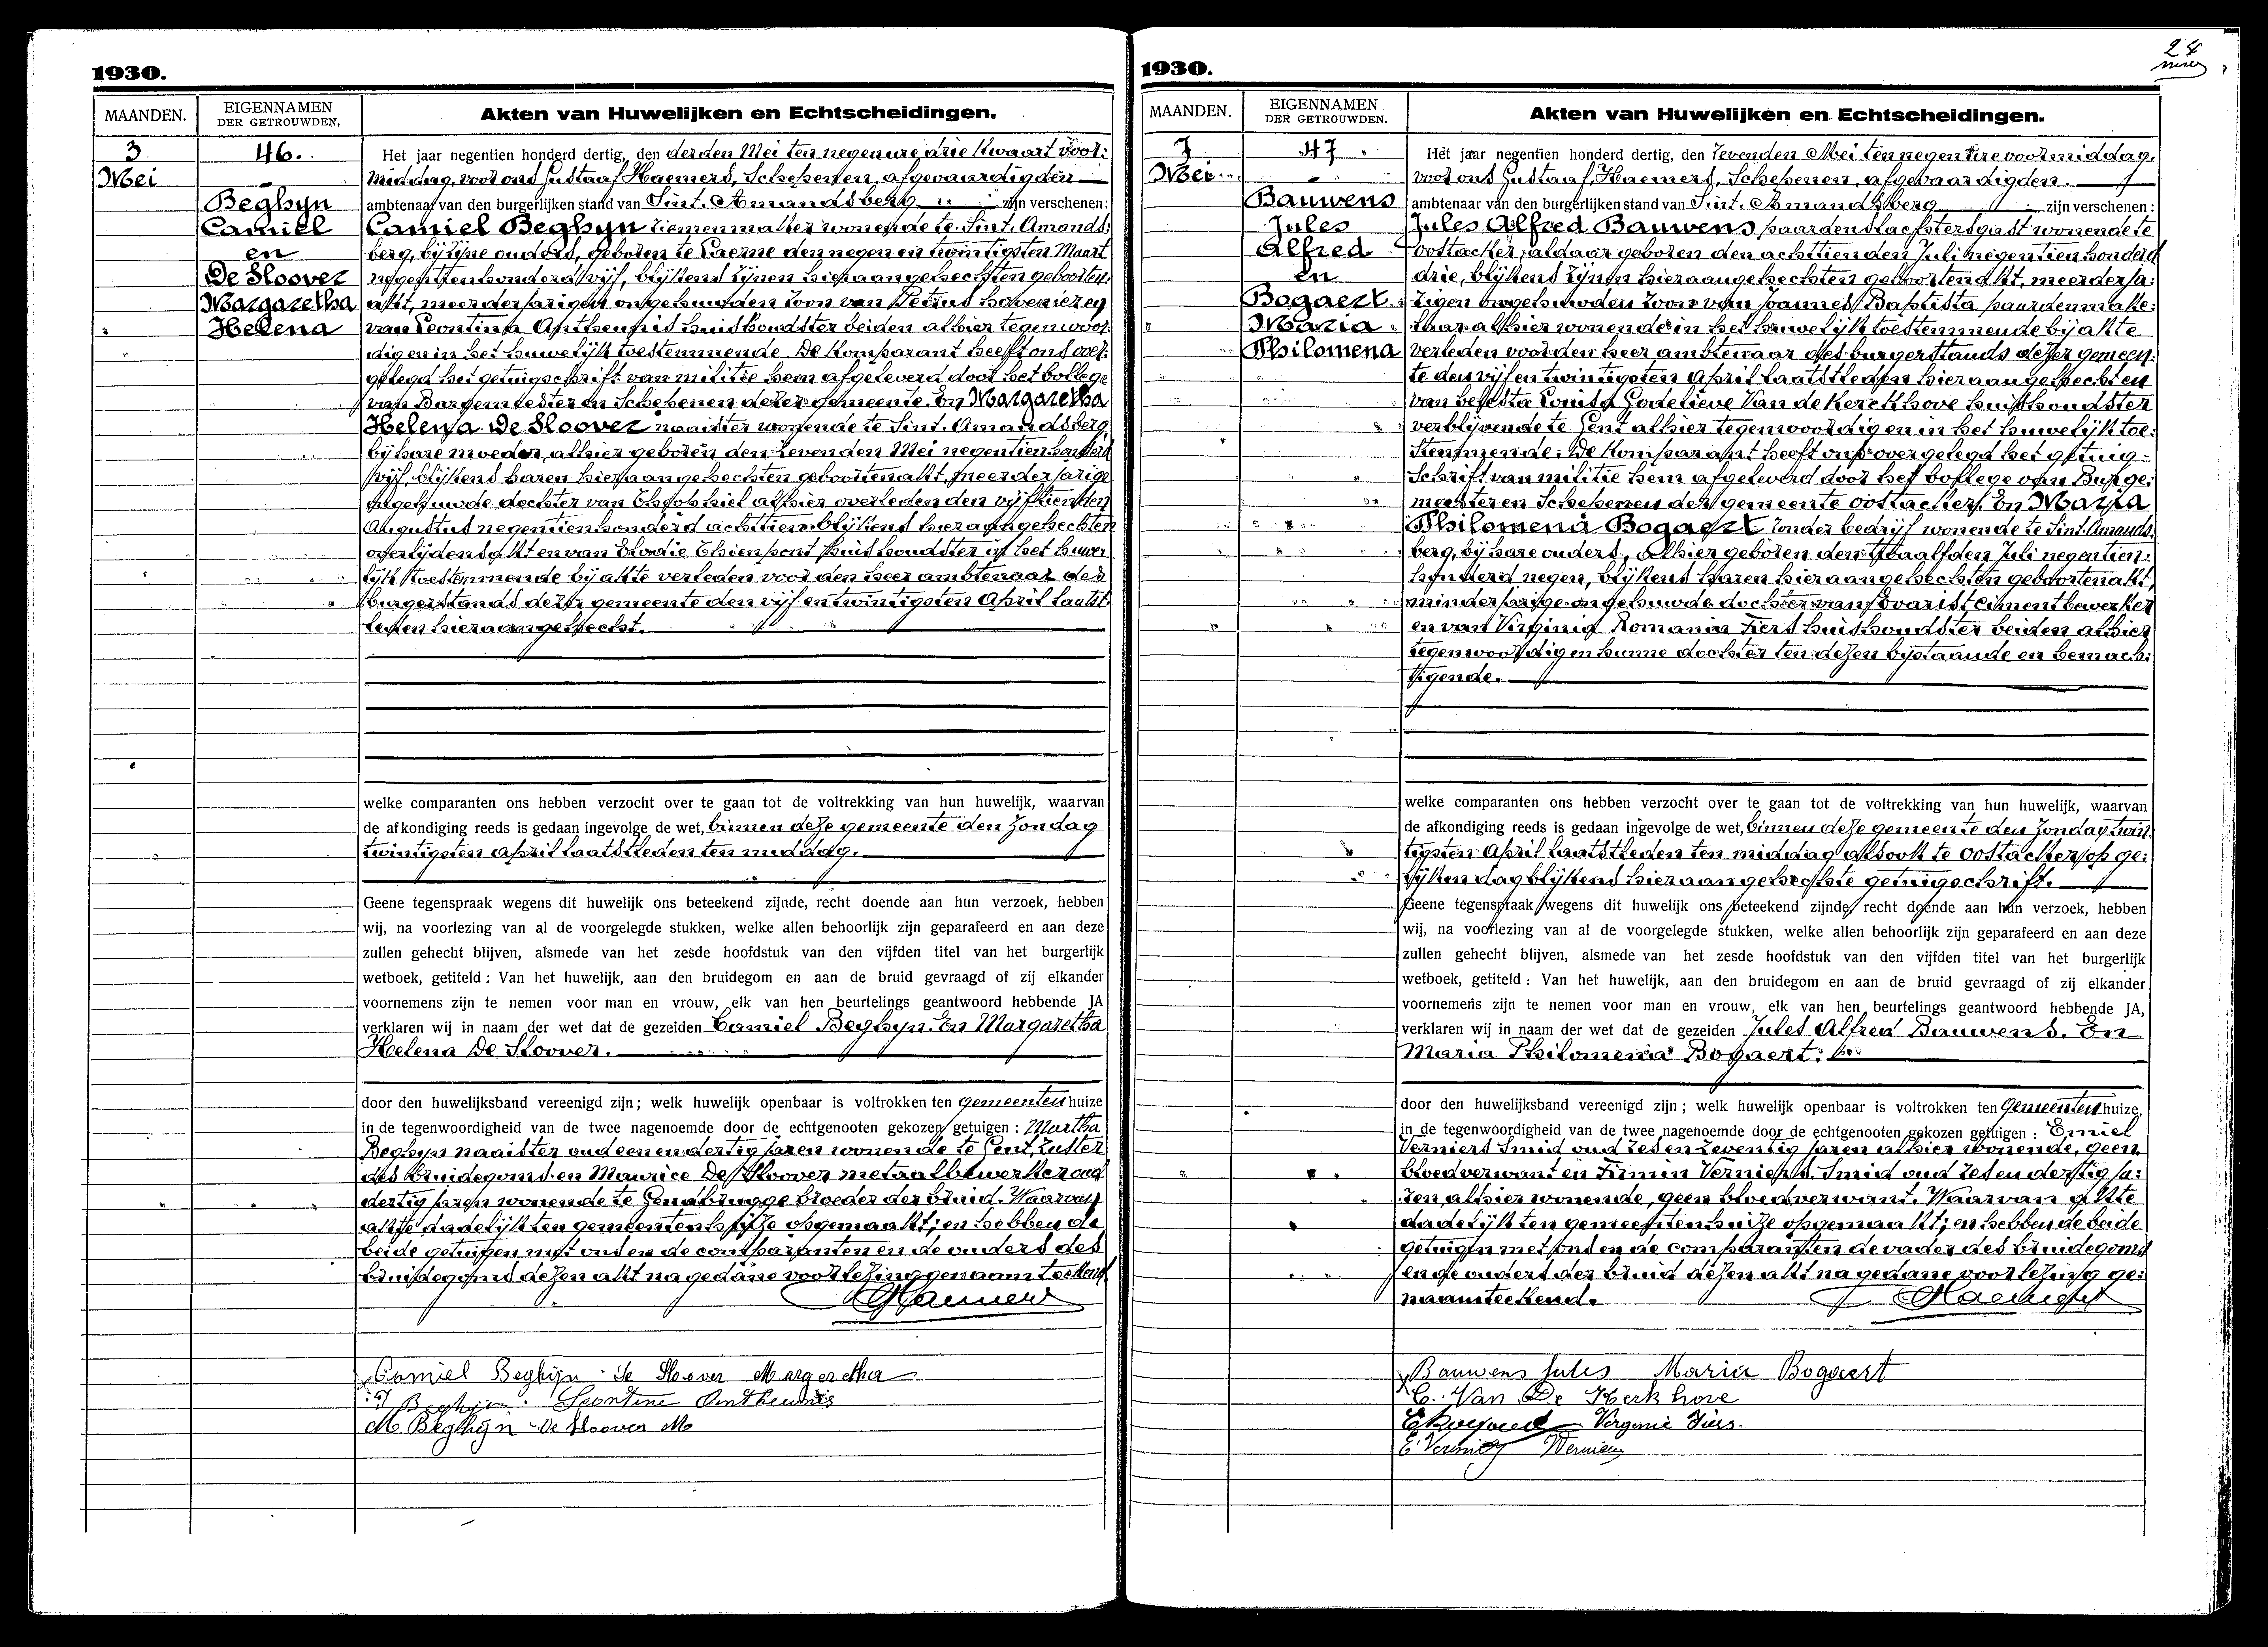 1930.
MAANDEN.
EIGENNAMEN
DER GETROUWDEN.
Akten van Huwelijken en Echtscheidingen.
3
Mei
46.
Beghyn
Camiel
en
De Sloover
Margaretha
Helena
Het jaar negentien honderd dertig, den derden Mei ten negenure drie kwaart voor:
middag, voor ons Gustaaf Haemers, Schepenen, afgevaardigden
ambtenaar van den burgerlijken stand van Sint. Amandsberg zijn verschenen:
Camiel Beghyn timmerman alhier wonende te Sint. Amands:
berg, bij zijne ouders, geboren te Laerne den negen en twintigsten Maart
negentienhonderd vijf, blijkens zijnen hieraangehechten geboorten:
akt, meerderjarigen ongehuwden zoon van Petrus hovenier en
van Leontina Antheunis huishoudster beiden alhier tegenwoor:
dig en in het huwelijk toestemmende. De komparant heeft ons over:
gelegd het getuigschrift van militie hem afgeleverd door het bollege
van Burgemeester en Schepenen dezer gemeente. En Margaretha
Helena De Sloover naaister wonende te Sint. Amandsberg
bij hare moeder, alhier geboren den zevenden Mei negentienhonderd
vijf, blijkens haren hieraangehechten geboortenakt, meerderjarige
ongehuwde dochter van Theophiel alhier overleden den vijftienden
Augustus negentienhonderd achttien blijkens hieraangehechten
overlijdensakt en van Elodie Thienpont huishoudster in het huwe:
lijk toestemmende bij akte verleden voor den heer ambtenaar des
burgerstands dezer gemeente den vijf en twintigsten April laatst:
leden hieraangehecht.
welke comparanten ons hebben verzocht over te gaan tot de voltrekking van hun huwelijk, waarvan
de afkondiging reeds is gedaan ingevolge de wet, binnen deze gemeente den Zondag
twintigsten April laatstleden ten middag.
Geene tegenspraak wegens dit huwelijk ons beteekend zijnde, recht doende aan hun verzoek, hebben
wij, na voorlezing van al de voorgelegde stukken, welke allen behoorlijk zijn geparafeerd en aan deze
zullen gehecht blijven, alsmede van het zesde hoofdstuk van den vijfden titel van het burgerlijk
wetboek, getiteld : Van het huwelijk, aan den bruidegom en aan de bruid gevraagd of zij elkander
voornemens zijn te nemen voor man en vrouw, elk van hen beurtelings geantwoord hebbende JA
verklaren wij in naam der wet dat de gezeiden Camiel Beghyn. En Margaretha
Helena De Sloover.
door den huwelijksband vereenigd zijn ; welk huwelijk openbaar is voltrokken ten gemeenten huize
in de tegenwoordigheid van de twee nagenoemde door de echtgenooten gekozen getuigen : Martha
Beghyn naaister oud een en dertig jaren wonende te Gent, zuster
des bruidegoms en Maurice De Sloover metaalbewerker oud
dertig jaren wonende te Gendbrugge broeder der bruid. Waarvan
akte dadelijk ten gemeentenhuize opgemaakt; en hebben de
beide getuigen met ons en de comparanten en de ouders des
bruidegoms dezen akt na gedane voorlezing genaamteekend.
GHaemers
Camiel Beghijn De Sloover Margeretha
P Beghijn. Leontine Antheunis
M Beghijn De Sloover M
24
1930.
MAANDEN.
EIGENNAMEN
DER GETROUWDEN.
Akten van Huwelijken en Echtscheidingen.
7
Mei
47
Bauwens
Jules
Alfred
en
Bogaert
Maria
Philomena
Het jaar negentien honderd dertig, den zevenden Mei ten negen ure voormiddag,
voor ons Gustaaf Haemers, Schepenen, afgevaardigden.
ambtenaar van den burgerlijken stand van Sint. Amandsberg zijn verschenen :
Jules Alfred Bauwens paardenslachtersgast wonende te
Oostacker, aldaar geboren den achttienden Juli negentienhonderd
drie, blijkens zijnen hieraangehechten geboortenakt, meerderja:
rigen ongehuwden zoon van Joannes Baptista paardenmake:
laar alhier wonende in het huwelijk toestemmende bij akte
verleden voor den heer ambtenaar des burgerstands dezer gemeen:
te den vijf en twintigsten April laatstleden hieraangehecht en
van Celesta Louisa Godelieve Van de Kerckhove huishoudster
verblijvende te Gent alhier tegenwoordig en in het huwelijk toe:
stemmende. De komparant heeft ons overgelegd het getuig:
schrift van militie hem afgeleverd door het bollege van Burge:
meester en Schepenen der gemeente Oostacker. En Maria
Philomena Bogaert zonder bedrijf wonende te Sint. Amands:
berg, bij hare ouders, alhier geboren den twaalfden Juli negentien:
honderd negen, blijkens haren hieraangehechten geboortenakt,
minderjarige ongehuwde dochter van Evarist cimentbewerker
en van Virginia Romania Fiers huishoudster beiden alhier
tegenwoordig en hunne dochter ten dezen bijstaande en bemach:
tigende.
welke comparanten ons hebben verzocht over te gaan tot de voltrekking van hun huwelijk, waarvan
de afkondiging reeds is gedaan ingevolge de wet, binnen deze gemeente den Zondag twin
tigsten April laatstleden ten middag alsook te Oostacker op ge:
lijken dag blijkens hieraangehechte getuigschrift.
Geene tegenspraak wegens dit huwelijk ons beteekend zijnde, recht doende aan hun verzoek, hebben
wij, na voorlezing van al de voorgelegde stukken, welke allen behoorlijk zijn geparafeerd en aan deze
zullen gehecht blijven, alsmede van het zesde hoofdstuk van den vijfden titel van het burgerlijk
wetboek, getiteld : Van het huwelijk, aan den bruidegom en aan de bruid gevraagd of zij elkander
voornemens zijn te nemen voor man en vrouw, elk van hen beurtelings geantwoord hebbende JA,
verklaren wij in naam der wet dat de gezeiden Jules Alfred Bauwens. En
Maria Philomena Bogaert.
door den huwelijksband vereenigd zijn ; welk huwelijk openbaar is voltrokken ten Gemeenten huize,
in de tegenwoordigheid van de twee nagenoemde door de echtgenooten gekozen getuigen : Emiel
Verniers Smid oud zes en zeventig jaren alhier wonende, geen
bloedverwant en Firmin Verniers. Smid oud zes en dertig ja:
ren alhier wonende, geen bloedverwant. Waarvan akte
dadelijk ten gemeentenhuize opgemaakt; en hebben de beide
getuigen met ons en de comparanten de vader des bruidegoms
en de ouders der bruid dezen akt na gedane voorlezing ge:
naamteekend.
GHaemers
Bauwens Jules Maria Bogaert
C. Van De Kerkhove
E Bogaert Vergenie Fiers.
E Verniers Verniers